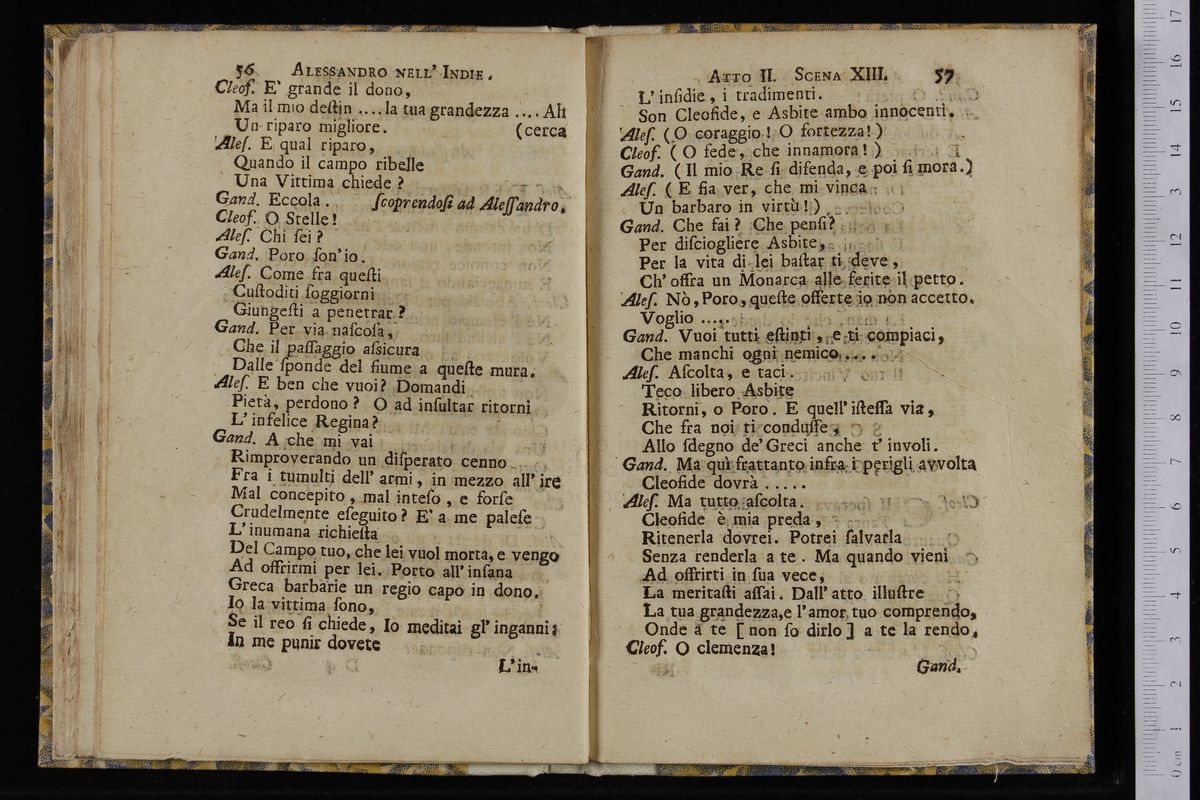 56 ALESSANDRO NELL' INDIE.
Cleof. E' grande il dono,
Ma il mio deſtin .... la tua grandezza .... Ah
Un riparo migliore. (cerca
Aleſ. E qual riparo,
Quando il campo ribelle
Una Vittima chiede ?
Gand. Eccola. ſcoprendoſi ad Aleſſandro.
Cleof. O Stelle!
Aleſ. Chi ſei ?
Gand. Poro ſon' io.
Aleſ. Come fra queſti
Cuſtoditi ſoggiorni
Giungeſti a penetrar ?
Gand. Per via naſcoſa,
Che il paſſaggio aſsicura
Dalle ſponde del fiume a queſte mura.
Aleſ. E ben che vuoi? Domandi
Pietà, perdono ? O ad inſultar ritorni
L' infelice Regina?
Gand. A che mi vai
Rimproverando un diſperato cenno
Fra i tumulti dell' armi, in mezzo all' ire
Mal concepito, mal inteſo, e forſe
Crudelmente eſeguito? E' a me paleſe
L' inumana richieſta
Del Campo tuo, che lei vuol morta, e vengo
Ad offrirmi per lei. Porto all' inſana
Greca barbarie un regio capo in dono.
Io la vittima ſono,
Se il reo ſi chiede, Io meditai gl' inganni;
In me punir dovete
L' in-
ATTO II. SCENA XIII. 57
L' inſidie, i tradimenti.
Son Cleofide, e Asbite ambo innocenti.
Aleſ. ( O coraggio ! O fortezza! )
Cleof. ( O fede, che innamora! )
Gand. ( Il mio Re ſi difenda, e poi ſi mora. )
Aleſ. ( E fia ver, che mi vinca
Un barbaro in virtù! )
Gand. Che fai ? Che penſi?
Per diſciogliere Asbite,
Per la vita di lei baſtar ti deve,
Ch' offra un Monarca alle ferite il petto.
Aleſ. Nò, Poro, queſte offerte io non accetto.
Voglio .....
Gand. Vuoi tutti eſtinti, e ti compiaci,
Che manchi ogni nemico ....
Aleſ. Aſcolta, e taci.
Teco libero Asbite
Ritorni, o Poro. E quell' iſteſſa via,
Che fra noi ti conduſſe,
Allo ſdegno de' Greci anche t' involi.
Gand. Ma quì frattanto infra i perigli avvolta
Cleofide dovrà .....
Aleſ. Ma tutto aſcolta.
Cleofide è mia preda,
Ritenerla dovrei. Potrei ſalvarla
Senza renderla a te . Ma quando vieni
Ad offrirti in ſua vece,
La meritaſti aſſai. Dall' atto illuſtre
La tua grandezza, e l' amor tuo comprendo,
Onde a te [ non ſo dirlo ] a te la rendo.
Cleof. O clemenza!
Gand.
0 cm 1 2 3 4 5 6 7 8 9 10 11 12 13 14 15 16 17